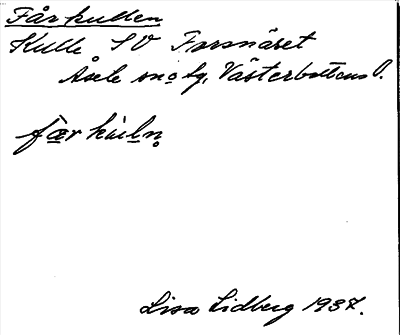 Fårkullen
Kulle SV Forsnäset
Åsele sn o lg. Västerbottens l.
fær kùlṇ
Lisa Lidberg 1937.